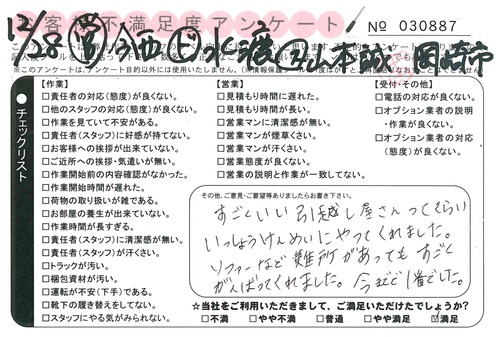 お客様不満足度アンケート
№ 030887
12/28
山本誠
岡崎市
※このアンケートは、アンケート目的以外には使用いたしません。
チェックリスト
【作業】
□責任者の対応(態度)が良くない。
□他のスタッフの対応(態度)が良くない。
□作業を見ていて不安がある。
□責任者(スタッフ)に好感が持てない。
□お客様への挨拶が出来ていない。
□ご近所への挨拶・気遣いが無い。
□作業開始前の内容確認がなかった。
□作業開始時間が遅れた。
□荷物の取り扱いが雑である。
□お部屋の養生が出来ていない。
□作業時間が長すぎる。
□責任者(スタッフ)に清潔感が無い。
□責任者(スタッフ)が汗くさい。
□トラックが汚い。
□梱包資材が汚い。
□運転が不安(下手)である。
□靴下の履き替えをしてない。
□スタッフにやる気がみられない。
【営業】
□見積もり時間に遅れた。
□見積もり時間が長い。
□営業マンに清潔感が無い。
□営業マンが煙草くさい。
□営業マンが汗くさい。
□営業態度が良くない。
□営業の説明と作業が一致してない。
【受付・その他】
□電話の対応が良くない。
□オプション業者の説明・作業が良くない。
□オプション業者の対応(態度)が良くない。
その他、ご意見・ご要望等ありましたらお書き下さい。
すごくいい引越し屋さんってくらい
いっしょうけんめいにやってくれました。
ソファーなど難所があってもすごく
がんばってくれました。今までで1番でした。
☆当社をご利用いただきまして、ご満足いただけたでしょうか?
□不満 □やや不満 □普通 □やや満足 ☑満足